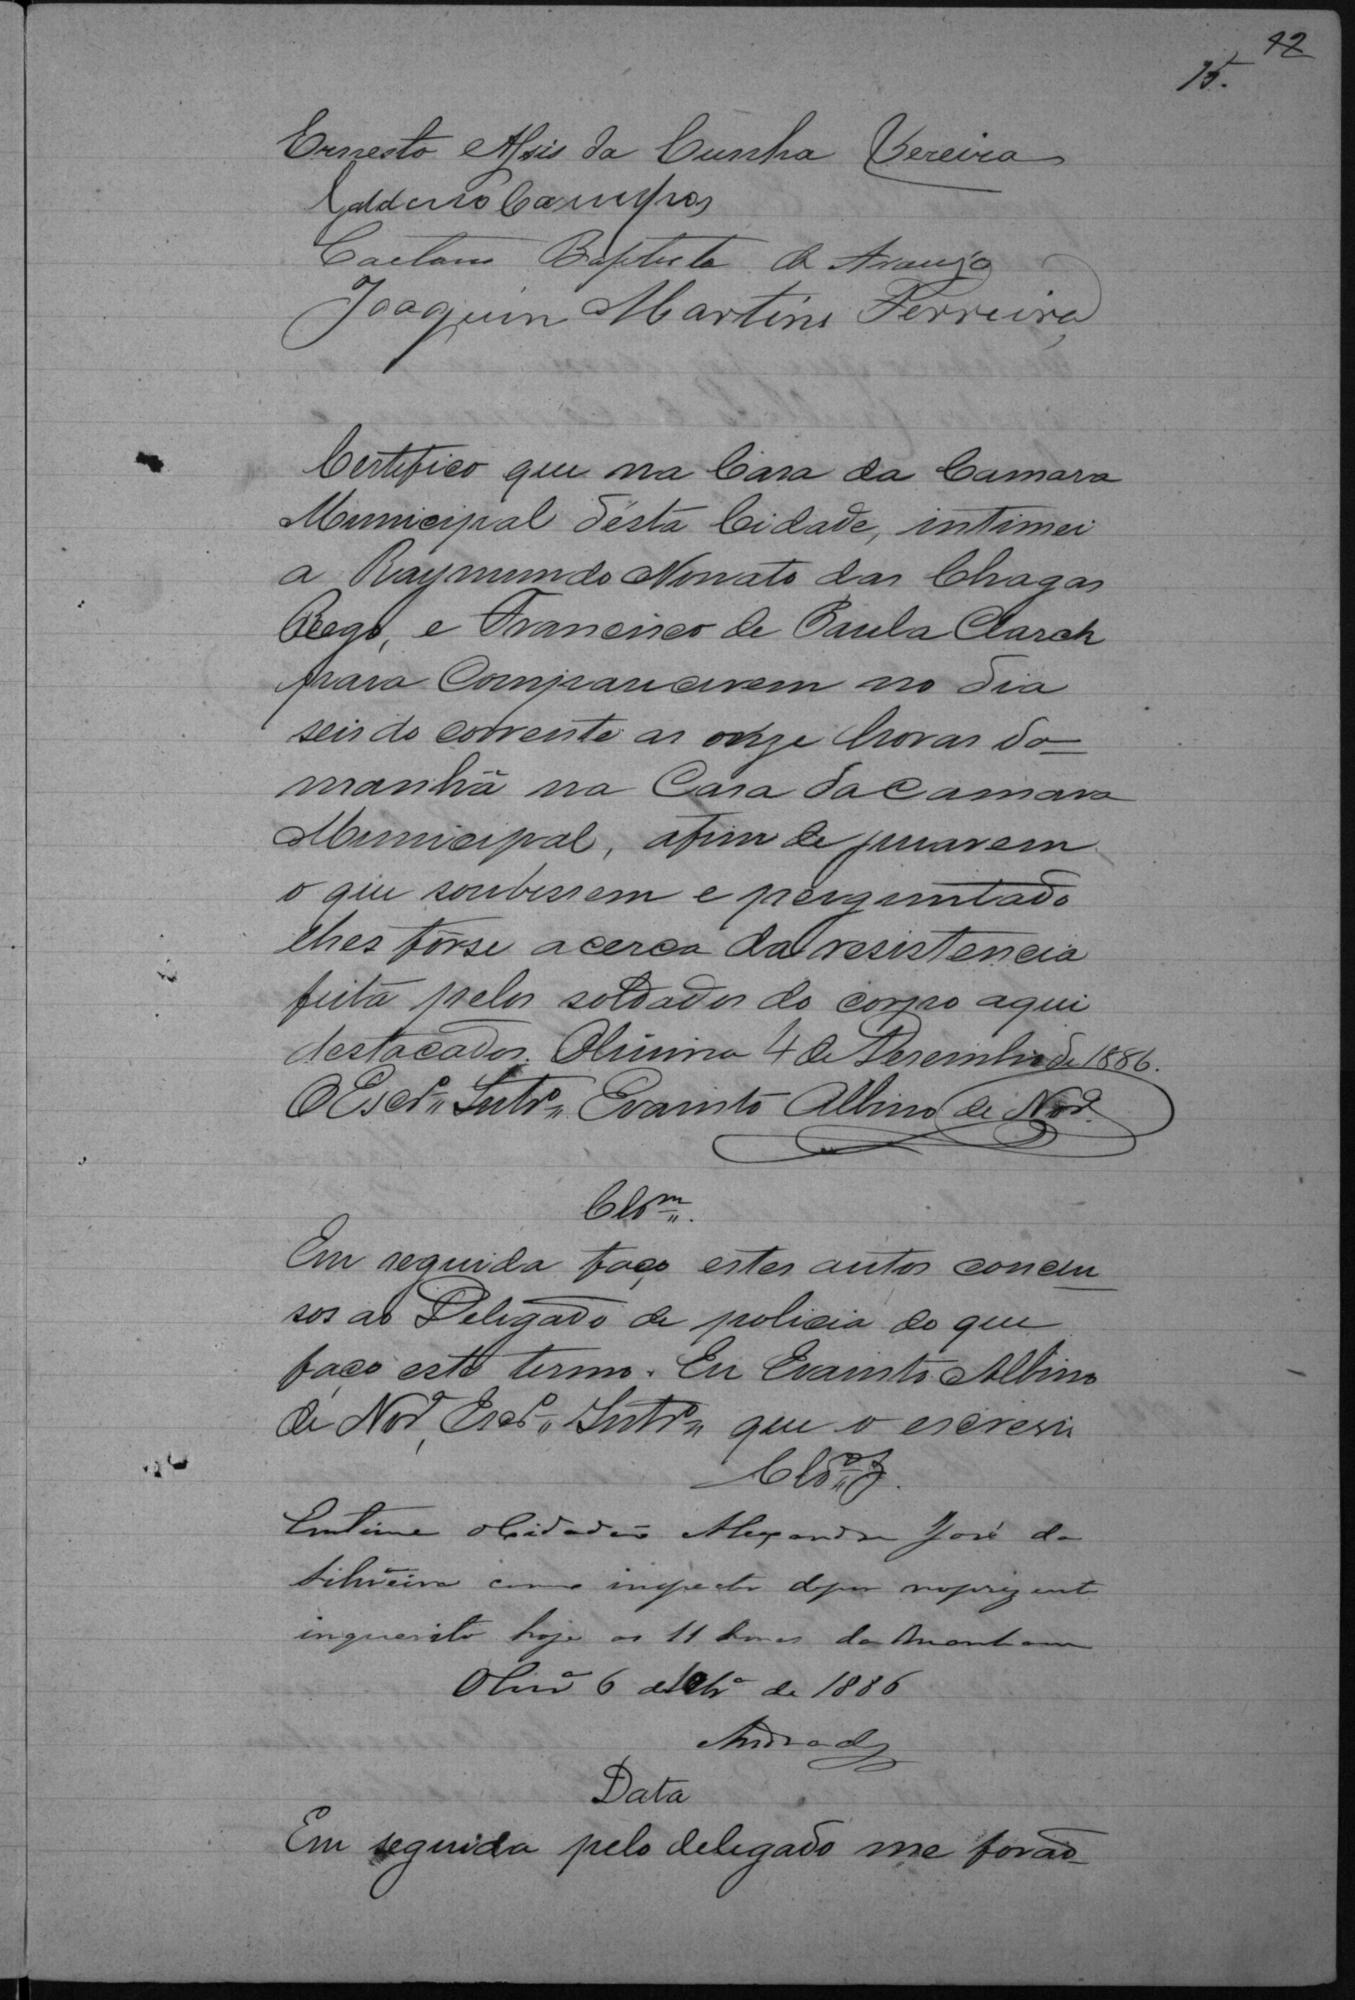 12
15.
Ernesto Assis da Cunha Pereira
Campos
Caetano Baptista de Araujo
Joaquim Martins Ferreira
Certifico que na Casa da Camara
Municipal desta Cidade, intimei
a Raymundo Nonato das Chagas
Rego, e Francisco de Paula Clarck
para comparecerem no dia
seis do corrente as onze horas da
manhã na Casa da Camara
Municipal, afim de jurarem
o que soubessem e perguntado
lhes fosse acerca da resistencia
feita pelos soldados do corpo aqui
destacados. Olinina 4 de Desembro de 1886.
O Escr.º Intr.º Evaristo Albino de Nor.ª
Clsm.
Em seguida faço estes autos conclu
sos ao Delegado de policia do que
faço este termo. Eu Evaristo Albino
de Nor.ª, Escr.º Intr.º que o escrevi
Clsº
Intime o Cidadão Alexandre José da
Silveira como inspector depor no prezente
inquerito hoje as 11 horas da manham
6 de de 1886
Andrade
Data
Em seguida pelo delegado me forão